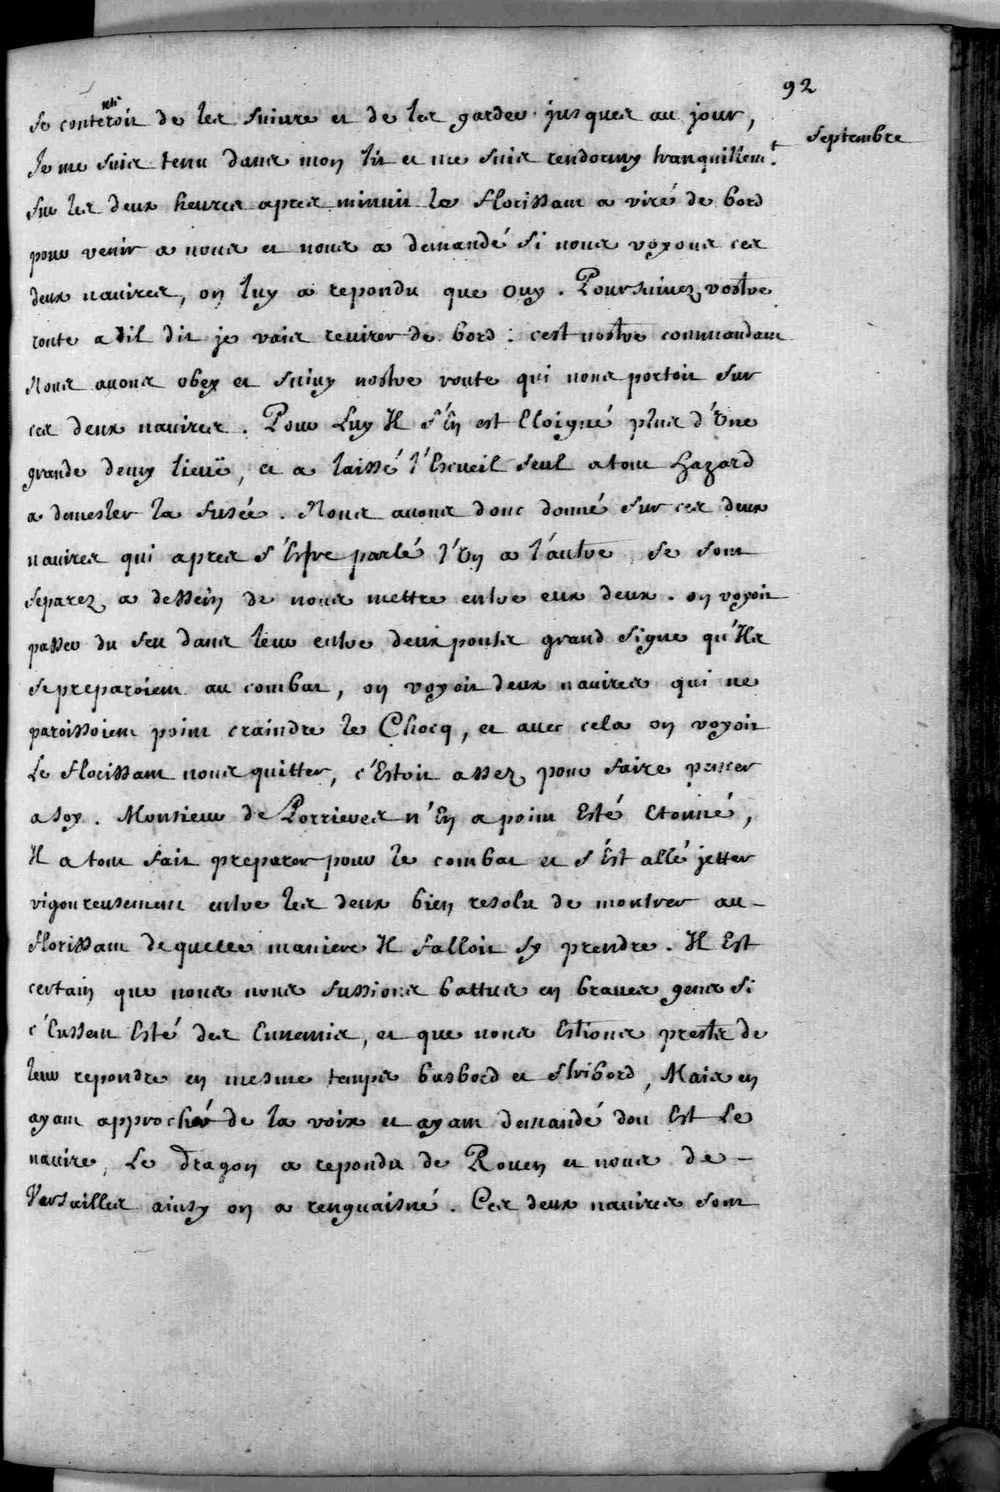 92
Septembre
se contenteroit de les suivre et de les garder jusques au jour,
Je me suis tenu dans mon lit et me suis rendormy tranquillemt.
sur les deux heures apres minuit le florissant a viré de bord
pour venir a nous et nous a demandé si nous voyons ces
deux navires, on luy a repondu que ouy. Poursuivez vostre
route a til dit je vais revirer de bord : c'est nostre commandant
Nous avons obey et suivy nostre route qui nous portoit sur
ces deux navires. Pour Luy Il s'En est Eloigné plus d'Une
grande demy lieuë, et a laissé l'Escueil seul a tout hazard
a demesler la fusée. Nous avons donc donné sur ces deux
navires qui apres s'Estre parlé l'Un a l'autre se sont
separez a dessein de nous mettre entre eux deux. on voyoit
passer du feu dans leur entre deux ponts grand signe qu'Ils
se preparoient au combat, on voyoit deux navires qui ne
paroissoient point craindre le Chocq, et avec cela on voyoit
Le florissant nous quitter, c'Estoit assez pour faire penser
a soy. Monsieur de Porrieres n'En a point Esté Etonné,
Il a tout fait preparer pour le combat et s'Est allé jetter
vigoureusement entre les deux bien resolu de montrer au-
florissant de quelle maniere Il falloit sy prendre. Il Est
certain que nous nous fussions battus en braves gens si
c'Eussent Esté des Ennemis, et que nous Estions prests de
leur repondre en mesme temps basbord et stribord, Mais en
ayant approché de la voix et ayant demandé dou Est Le
navire, Le dragon a repondu de Rouen et nous de-
Versailles ainsy on a renguaisné. Ces deux navires sont